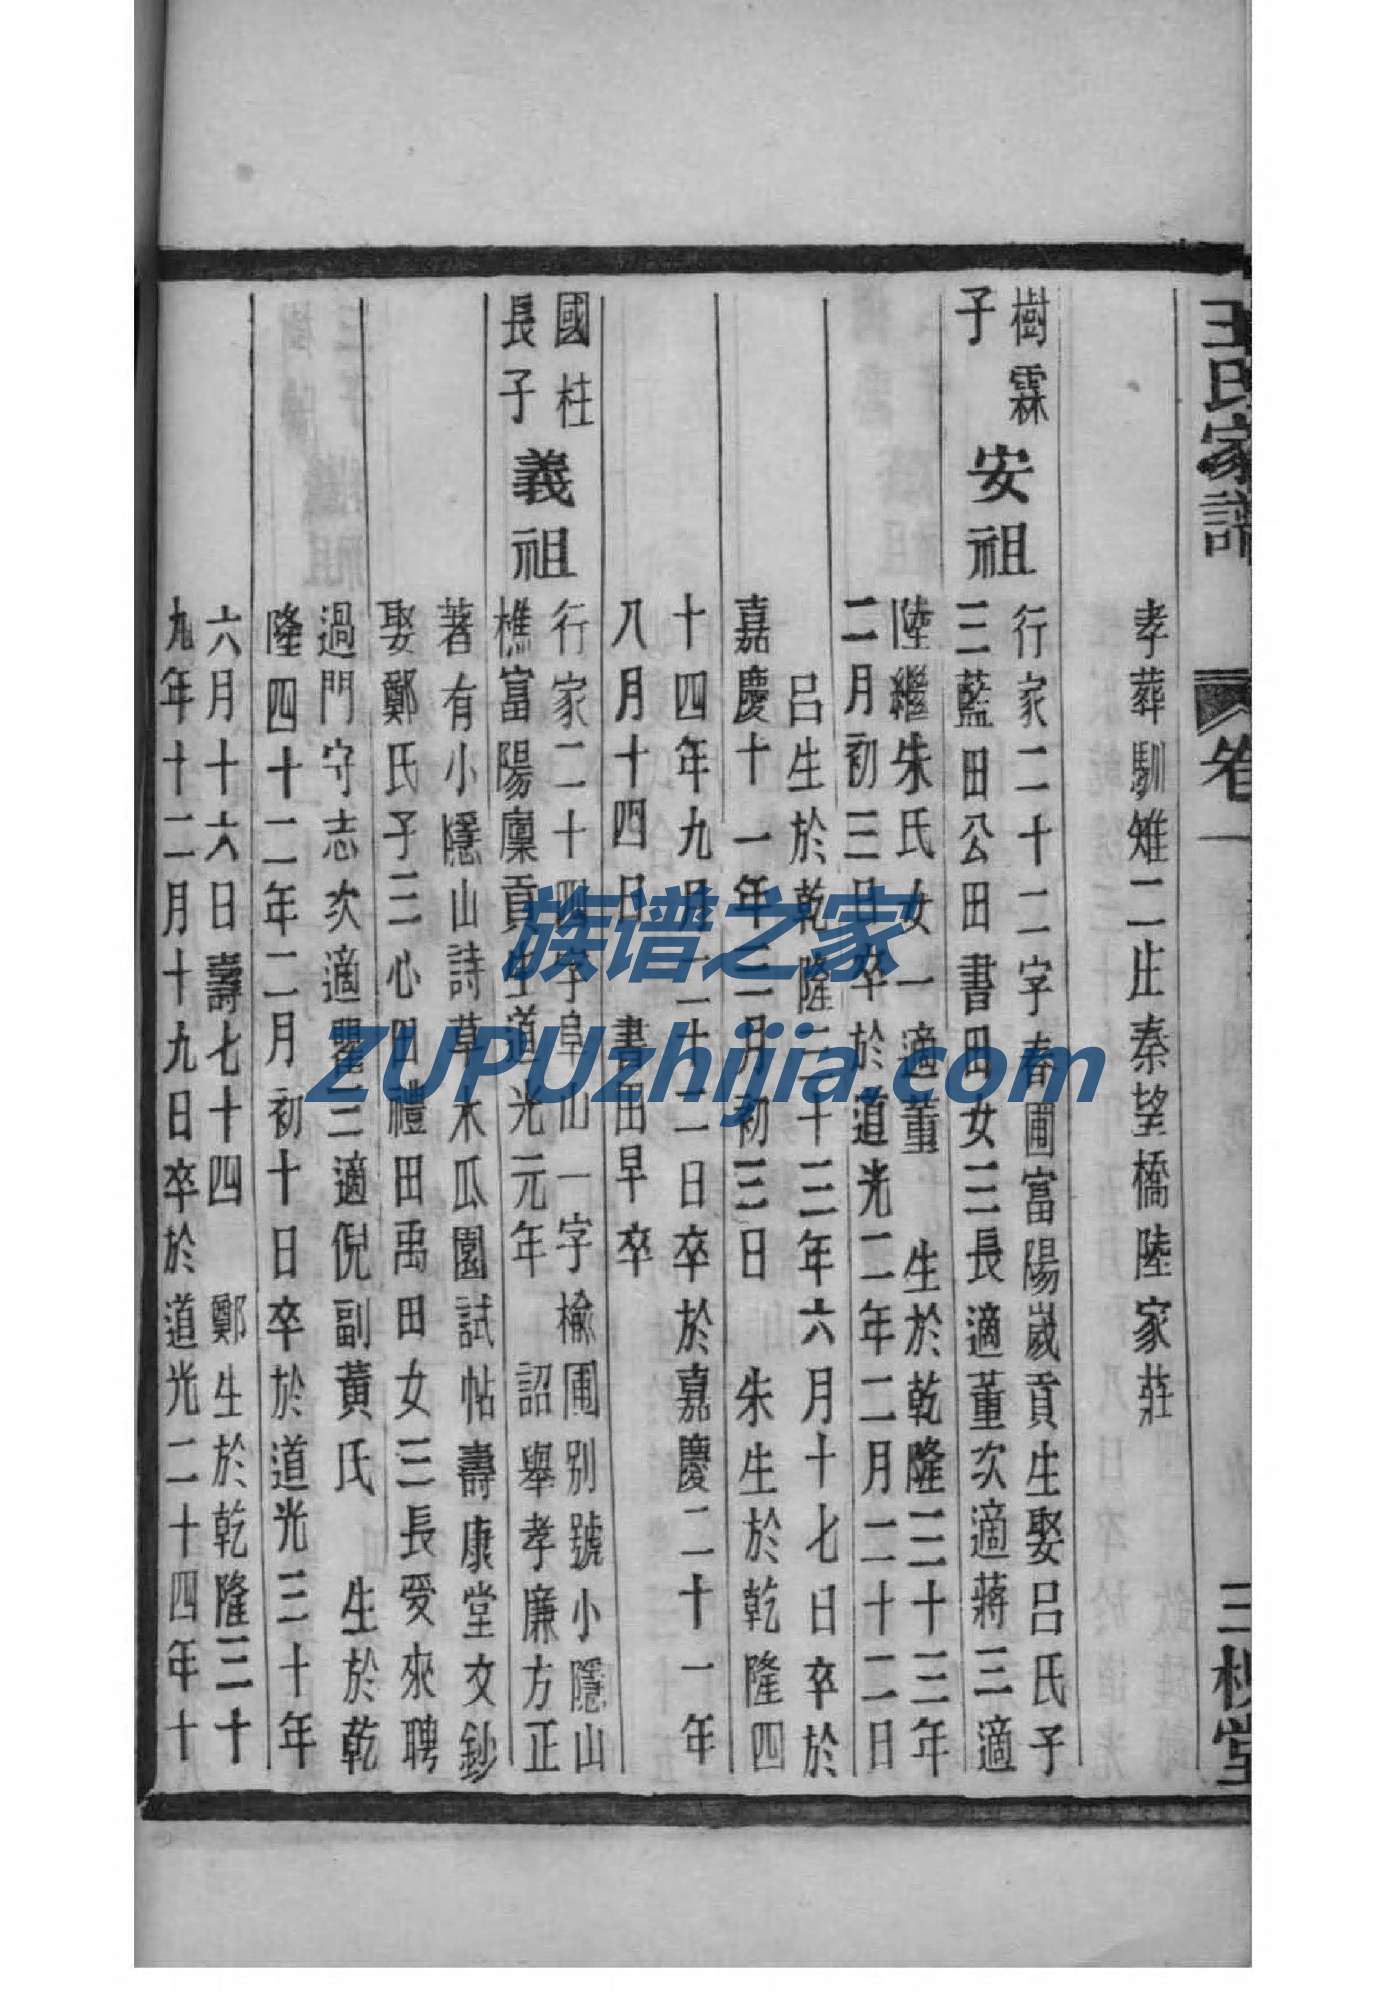 王氏家譜
卷一
三槐堂
孝葬馴雉二庄秦望橋陸家莊
樹霖
子
安祖
行家二十二字春圃富陽歲貢生娶呂氏子
三藍田公田書田女三長適董次適蔣三適
陸繼朱氏女一適董 生於乾隆三十三年
二月初三日卒於道光二年二月二十二日
呂生於乾隆三十三年六月十七日卒於
嘉慶十一年三月初三日 朱生於乾隆四
十四年九月二十二日卒於嘉慶二十一年
八月十四日 書田早卒
國柱
長子
義祖
行家二十四字阜山一字榆圃別號小隱山
樵富陽廩貢生道光元年 詔舉孝廉方正
著有小隱山詩草木瓜園試帖壽康堂文鈔
娶鄭氏子三心田禮田禹田女三長受來聘
過門守志次適瞿三適倪副黃氏 生於乾
隆四十二年二月初十日卒於道光三十年
六月十六日壽七十四 鄭生於乾隆三十
九年十二月十九日卒於道光二十四年十
族谱之家
ZUPUzhijia.com